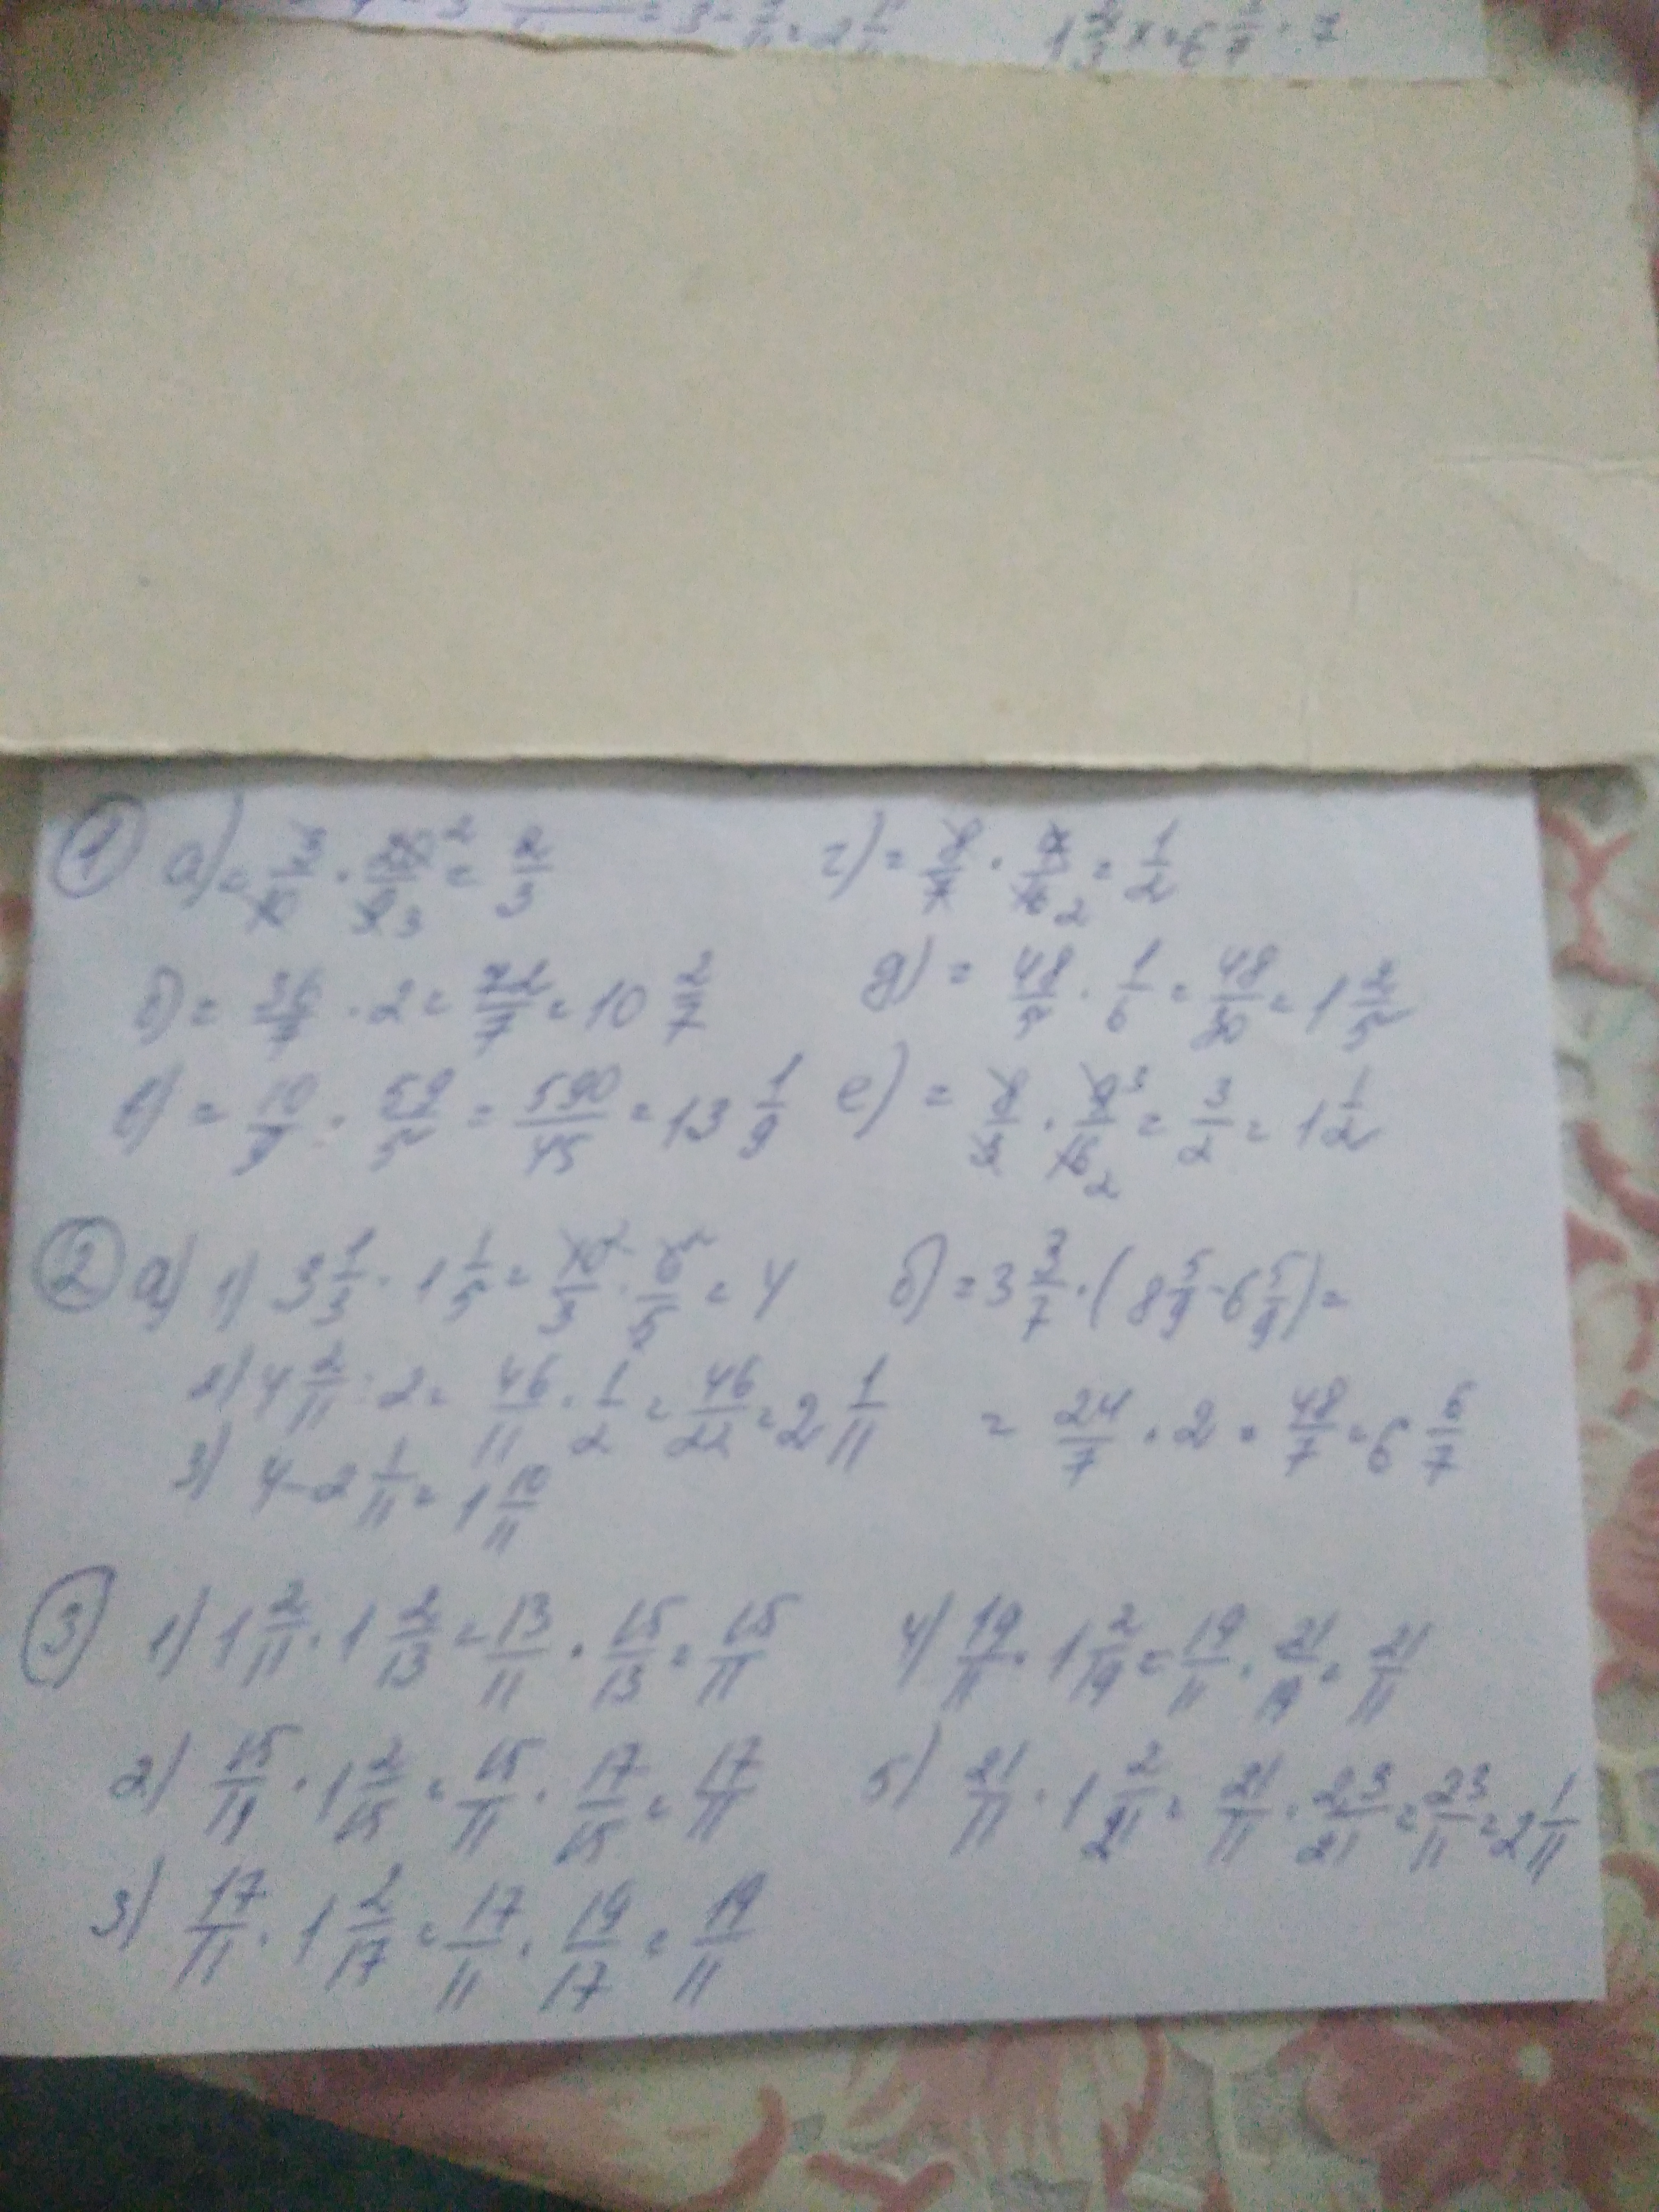 1 2/3 x = 6 3/7 · 7
① а) = 3/10 · 20/9 = 2/3 г) = 8/7 · 7/16 = 1/2
б) = 36/7 · 2 = 72/7 = 10 2/7 д) = 48/5 · 1/6 = 48/30 = 1 2/5
в) = 10/9 · 59/5 = 590/45 = 13 1/9 е) = 8/3 · 9/16 = 3/2 = 1 1/2
② а) 1) 3 1/3 · 1 1/5 = 10/3 · 6/5 = 4 б) = 3 3/7 · (8 5/9 - 6 5/9) =
2) 4 2/11 : 2 = 46/11 · 1/2 = 46/22 = 2 1/11 = 24/7 · 2 = 48/7 = 6 6/7
3) 4 - 2 1/11 = 1 10/11
③ 1) 1 2/11 · 1 2/13 = 13/11 · 15/13 = 15/11 4) 19/11 · 1 2/19 = 19/11 · 21/19 = 21/11
2) 15/11 · 1 2/15 = 15/11 · 17/15 = 17/11 5) 21/11 · 1 2/21 = 21/11 · 23/21 = 23/11 = 2 1/11
3) 17/11 · 1 2/17 = 17/11 · 19/17 = 19/11